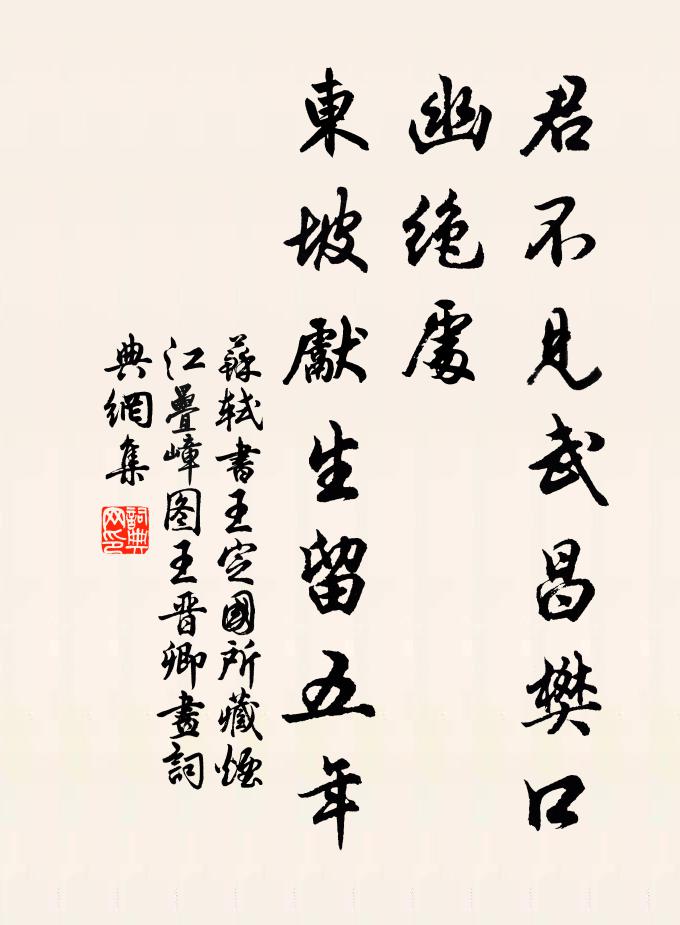 君不見武昌樊口
幽絕處
東坡獻生留五年
蘇軾書王定國所藏煙
江疊嶂图王晋卿畫詞
典網集
詞典网印